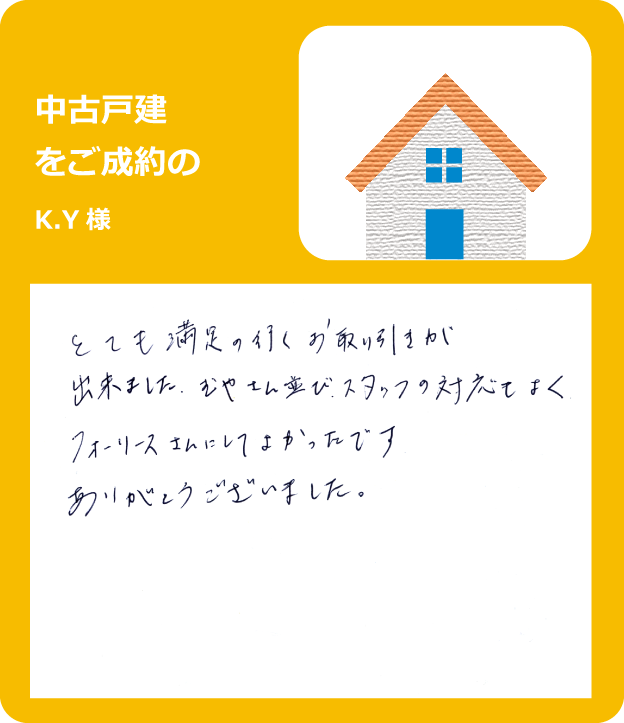 中古戸建
をご成約の
K.Y 様
とても満足の行くお取り引きが
出来ました。さん並び、スタッフの対応もよく、
フォーリースさんにしてよかったです
ありがとうございました。